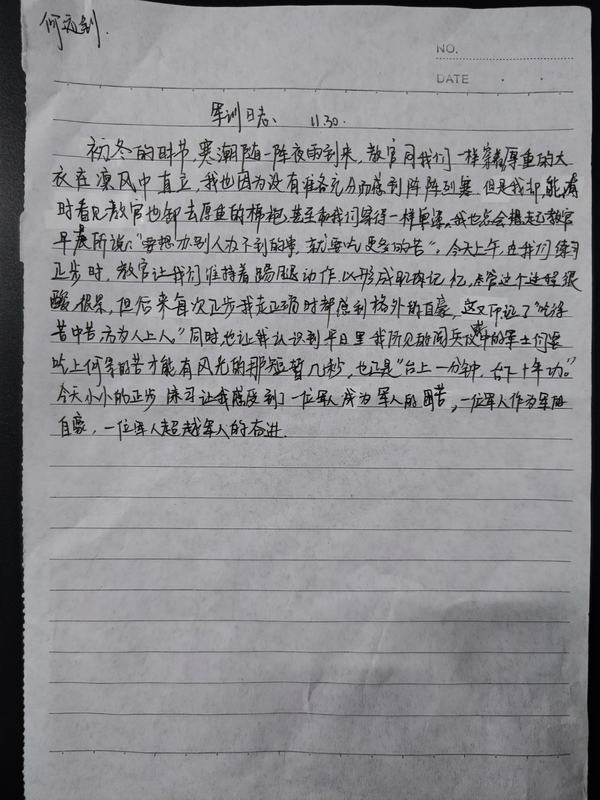 何
NO.
DATE
军训日志、 11.30.
初冬的时节,寒潮随一阵夜雨到来,教官同我们一样穿着厚重的大
衣在凛风中直立,我也因为没有准备充分而感到阵阵刺寒.但是我却能
时看见教官也卸去厚重的棉袍,甚至和我们穿得一样单薄,我也总会想起教官
早晨所说:“要想办别人办不到的事,就要吃更多的苦”。今天上午,在我们练习
正步时,教官让我们维持着踢腿动作,以形成肌肉记忆,尽管这个过程很
酸很累,但后来每次正步我走正确时都感到格外的自豪,这又印证了“吃得
苦中苦,方为人上人。”同时,也让我认识到平日里我所见的阅兵仪式中的军士们要
吃上何等的苦才能有风光的那短暂几秒,也正是“台上一分钟,台下十年功。”
今天小小的正步练习让我感受到了一位军人成为军人的困苦,一位军人作为军人的
自豪,一位军人超越军人的奋进.